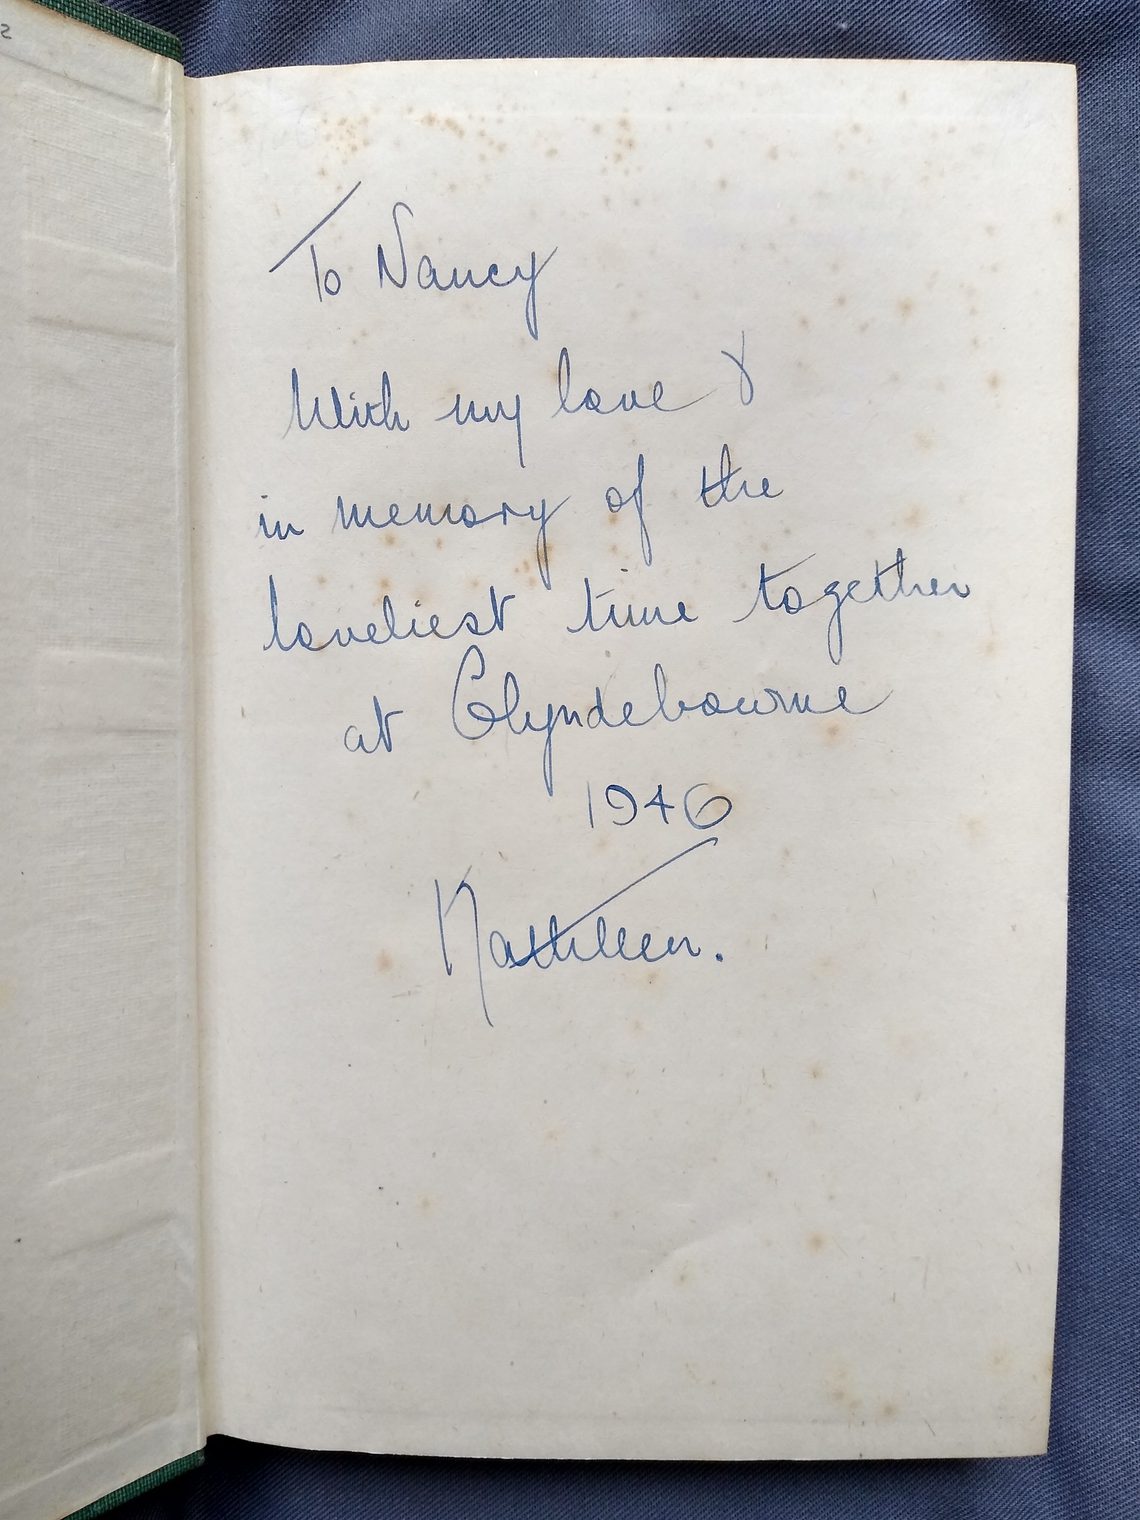 To Nancy
With my love &
in memory of the
loveliest time together
at Glyndebourne
1946
Kathleen.